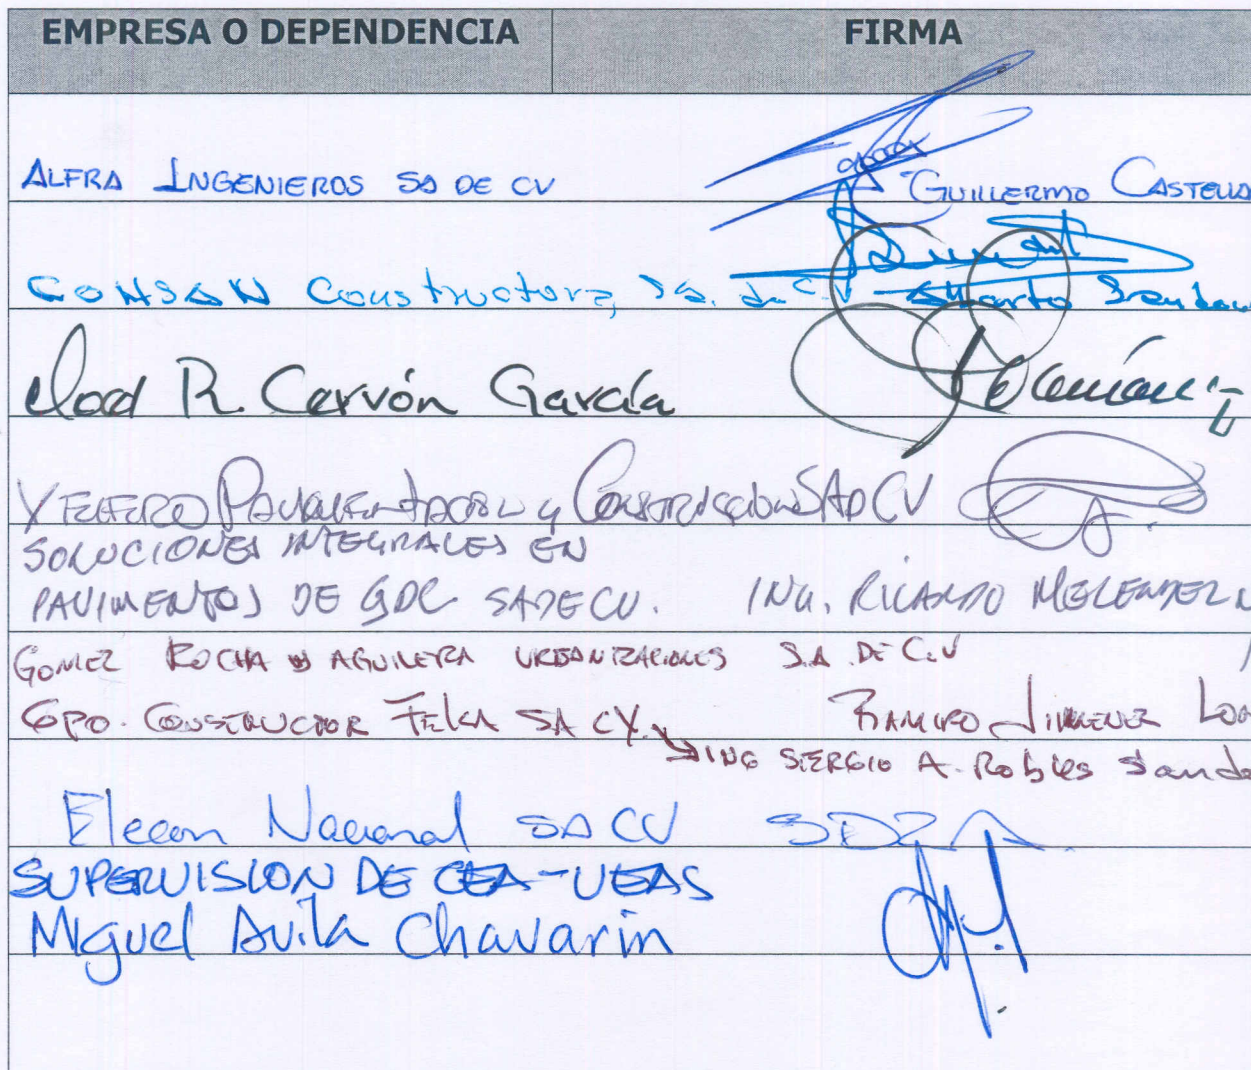 EMPRESA O DEPENDENCIA FIRMA
ALFRA INGENIEROS SA DE CV GUILLERMO
CONSAN Constructora, Sa. de C.V
R. Cervón García
PAVIMENTACION y CONSTRUCCION SA D CV
SOLUCIONES INTEGRALES EN
PAVIMENTOS DE GDL SA DE CV. ING. RICARDO MELENDEZ
GOMEZ ROCHA Y AGUILERA URBANIZACIONES S.A. DE C.V
GPO. CONSTRUCTOR FELCA SA CV. RAMIRO JIMENEZ
ING SERGIO A. Robles
Elecon Nacional SA CV
SUPERVISION DE CEA-UEAS
Miguel Avila Chavarin